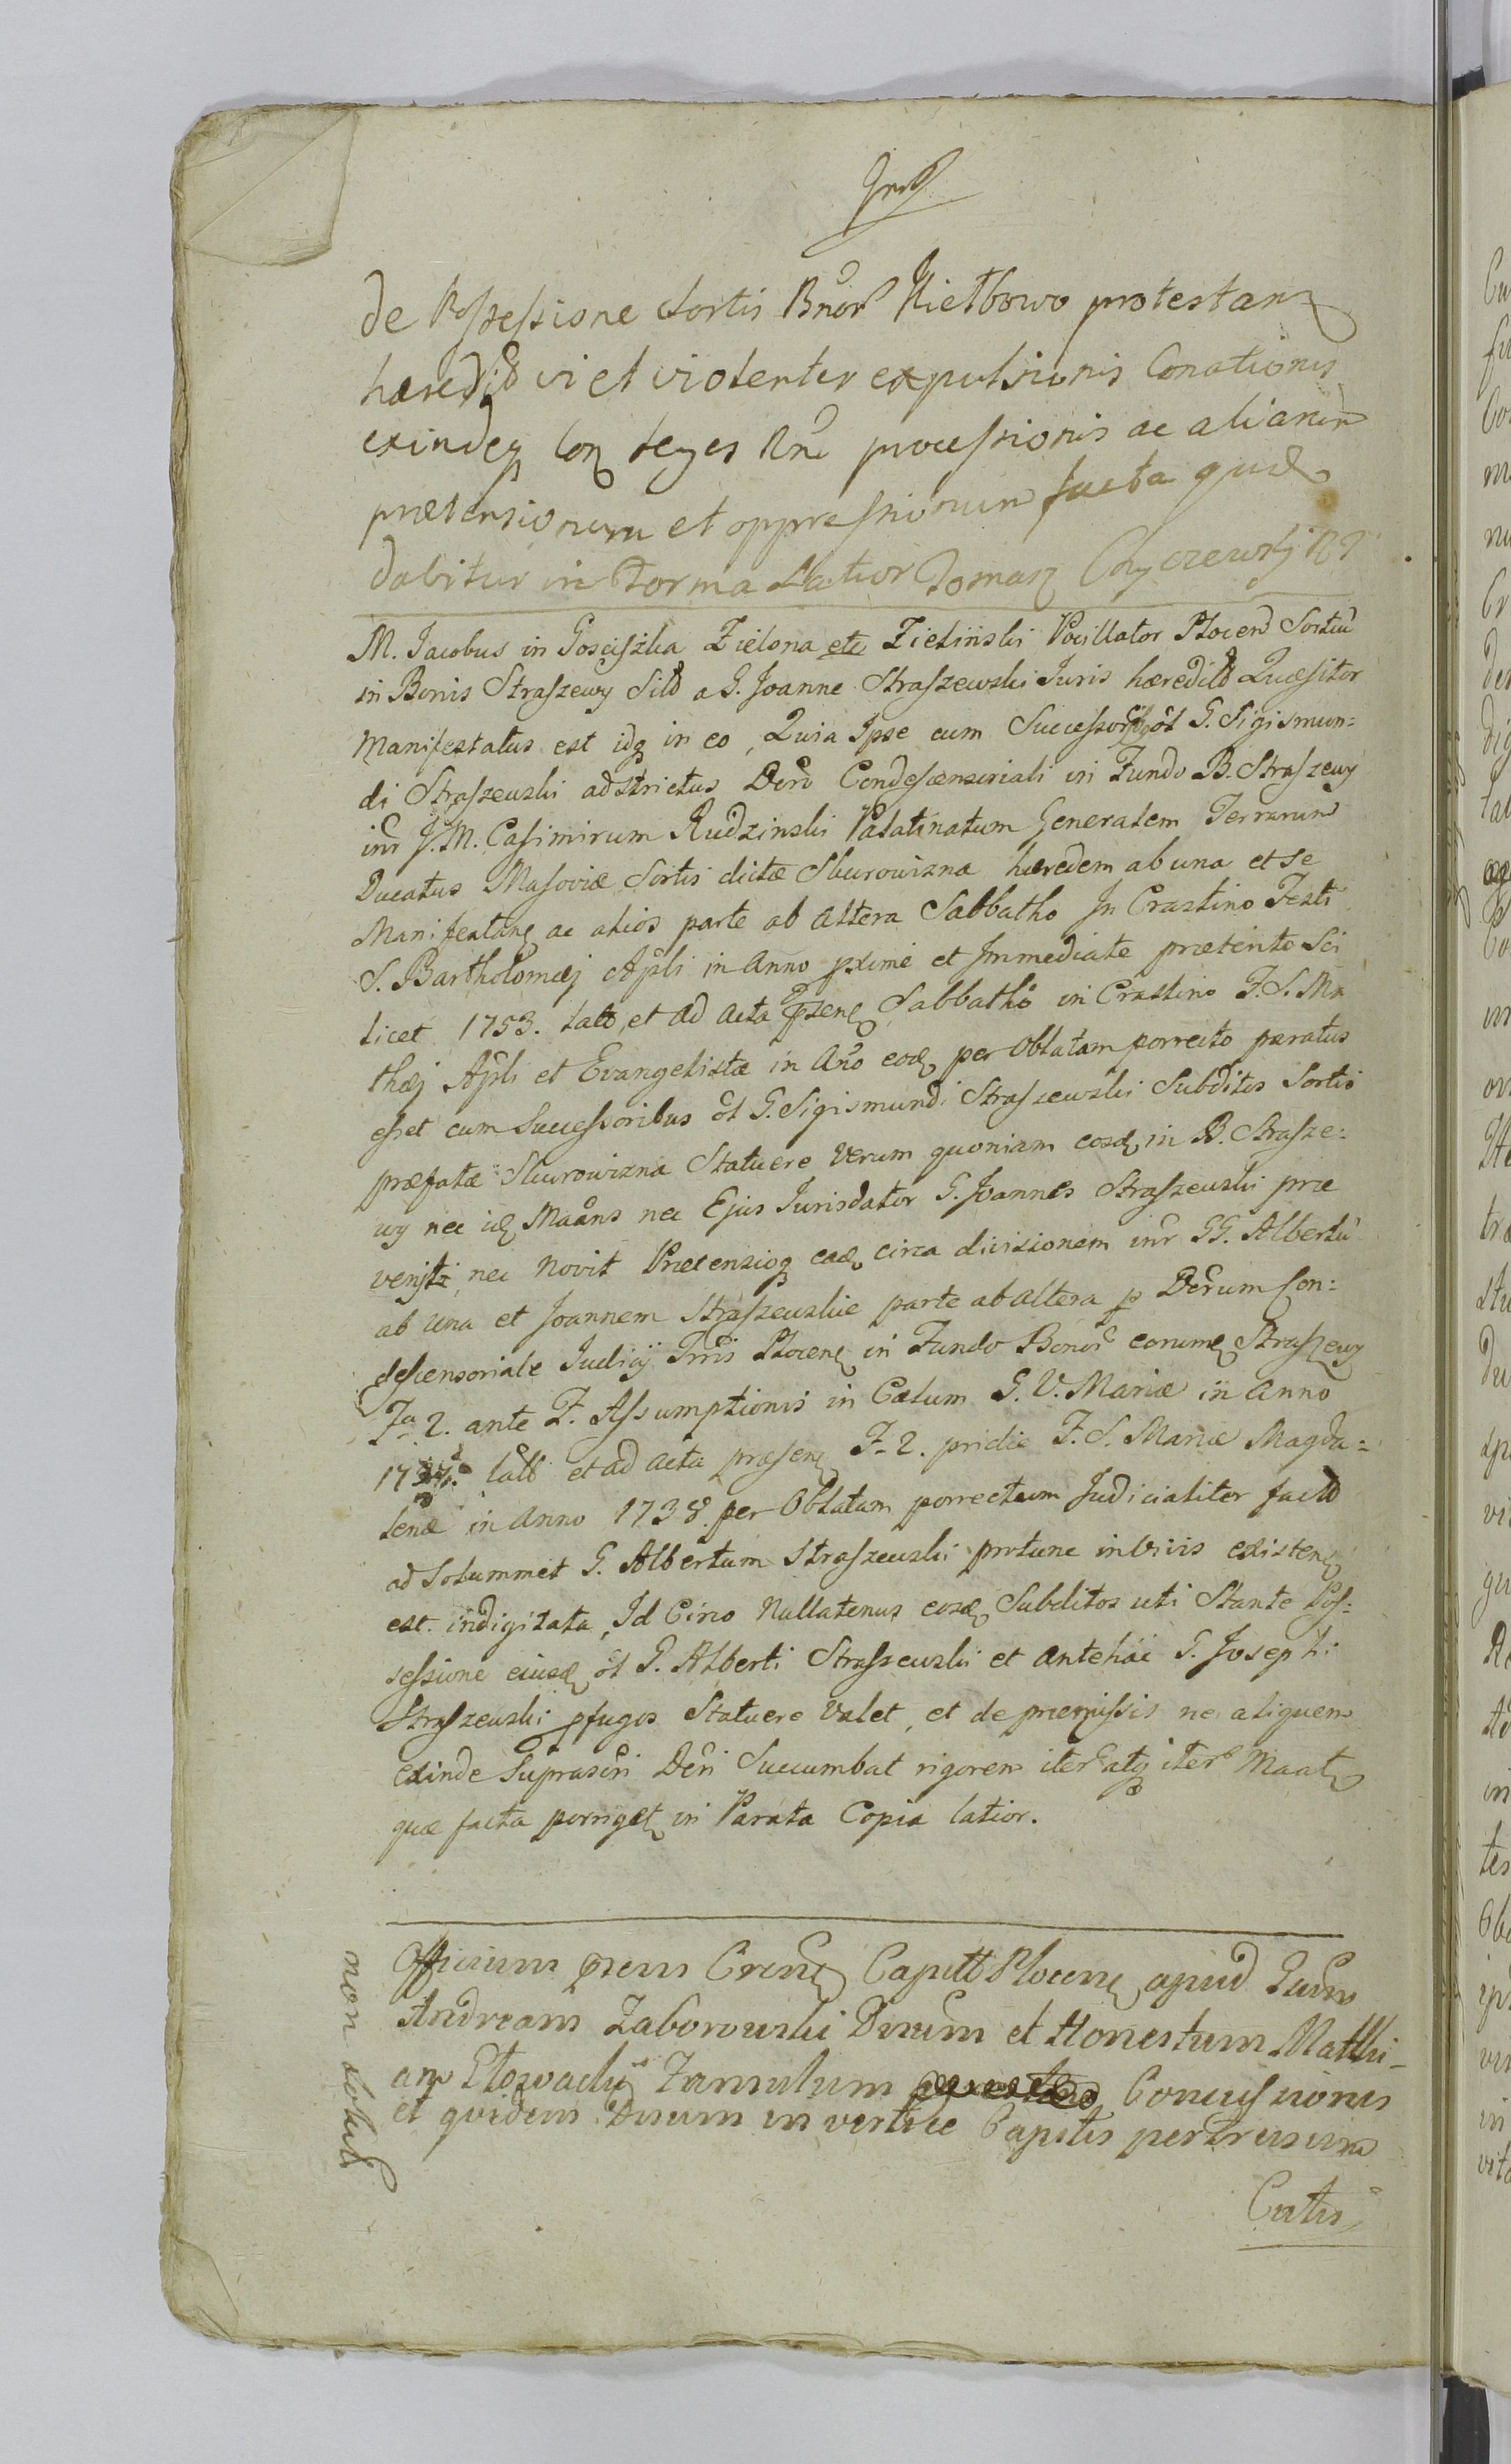 de Possessione Sortis Bnor Kiełbowo protestan
hæredit vi et violenter expulsionis Conationis
exindeq Con Leges Rni processionis ac aliarum
prætensionum et oppressionum facta quæ
dabitur in Forma Latior Tomasz Chyczewsky
M. Jacobus in Gosciszka Zielona etc Zielinski Pocillator Plocen Sortiu
in Bonis Straszewy Sitt a G. Joanne Straszewski Juris hæredit Quæsitor
Manifestatus est idq in eo, Quia Ipse cum Successor ol G. Sigismun=
di Straszewski adstrictus Dero Condescensoriali in Fundo B. Straszewy
intr J. M. Casimirum Rudzinski Palatinatum Generalem Terrarum
Ducatus Masoviæ Sortis dictæ Skurowizna hæredem ab una et se
Manifestan ac alios parte ab altera Sabbatho In Crastino Festi
S. Bartholomæj Apli in Anno pxime et Immediate præterito Sci
licet 1753. lato, et ad Acta præsen Sabbatho in Crastino F. S. Ma
thæj Apli et Evangelistæ in Ano eod per Oblatam porrecto paratus
esset cum Successoribus ol G. Sigismundi Straszewski Subditos Sortis
præfatæ Skurowizna Statuere Verum quoniam eosd in B. Strasze=
wy nec id Maans nec Ejus Jurisdator G. Joannes Straszewski præ
venit, nec Novit Prætensioq ead circa divisionem intr GG. Albertu
ab una et Joannem Straszewskie parte ab altera p Derum Con=
descensoriale Judicij Trris Plocen in Fundo Bonor eorum Straszewy
Fa 2. ante F. Assumptionis in Cælum G. V. Mariæ in Anno
1737. latt et ad Acta præsen F. 2. pridie F. S. Mariæ Magda=
lenæ in Anno 1738. per Oblatam porrectum Judicialiter facto
ad Solummet G. Albertum Straszewski protunc in Vivis existen
est indigitata, Id Circo Nullatenus eosd Subditos uti Stante Pos=
sessione eiusd ol G. Alberti Straszewski et antehac G. Josephi
Straszewski pfugos Statuere Valet, et de præmissis ne aliquem
Exinde Suprascri Deri Succumbat rigorem iter atq iter Maat
quæ facta porriget in Parata Copia latior.
Officium præsens Crense Capitt Plocens apud
Andream Zaborowski Divum et Honestum Matthi-
am Famulum Concussionis
et quidem Divum in vertice Capitis pertrusum
Cutis
non solut